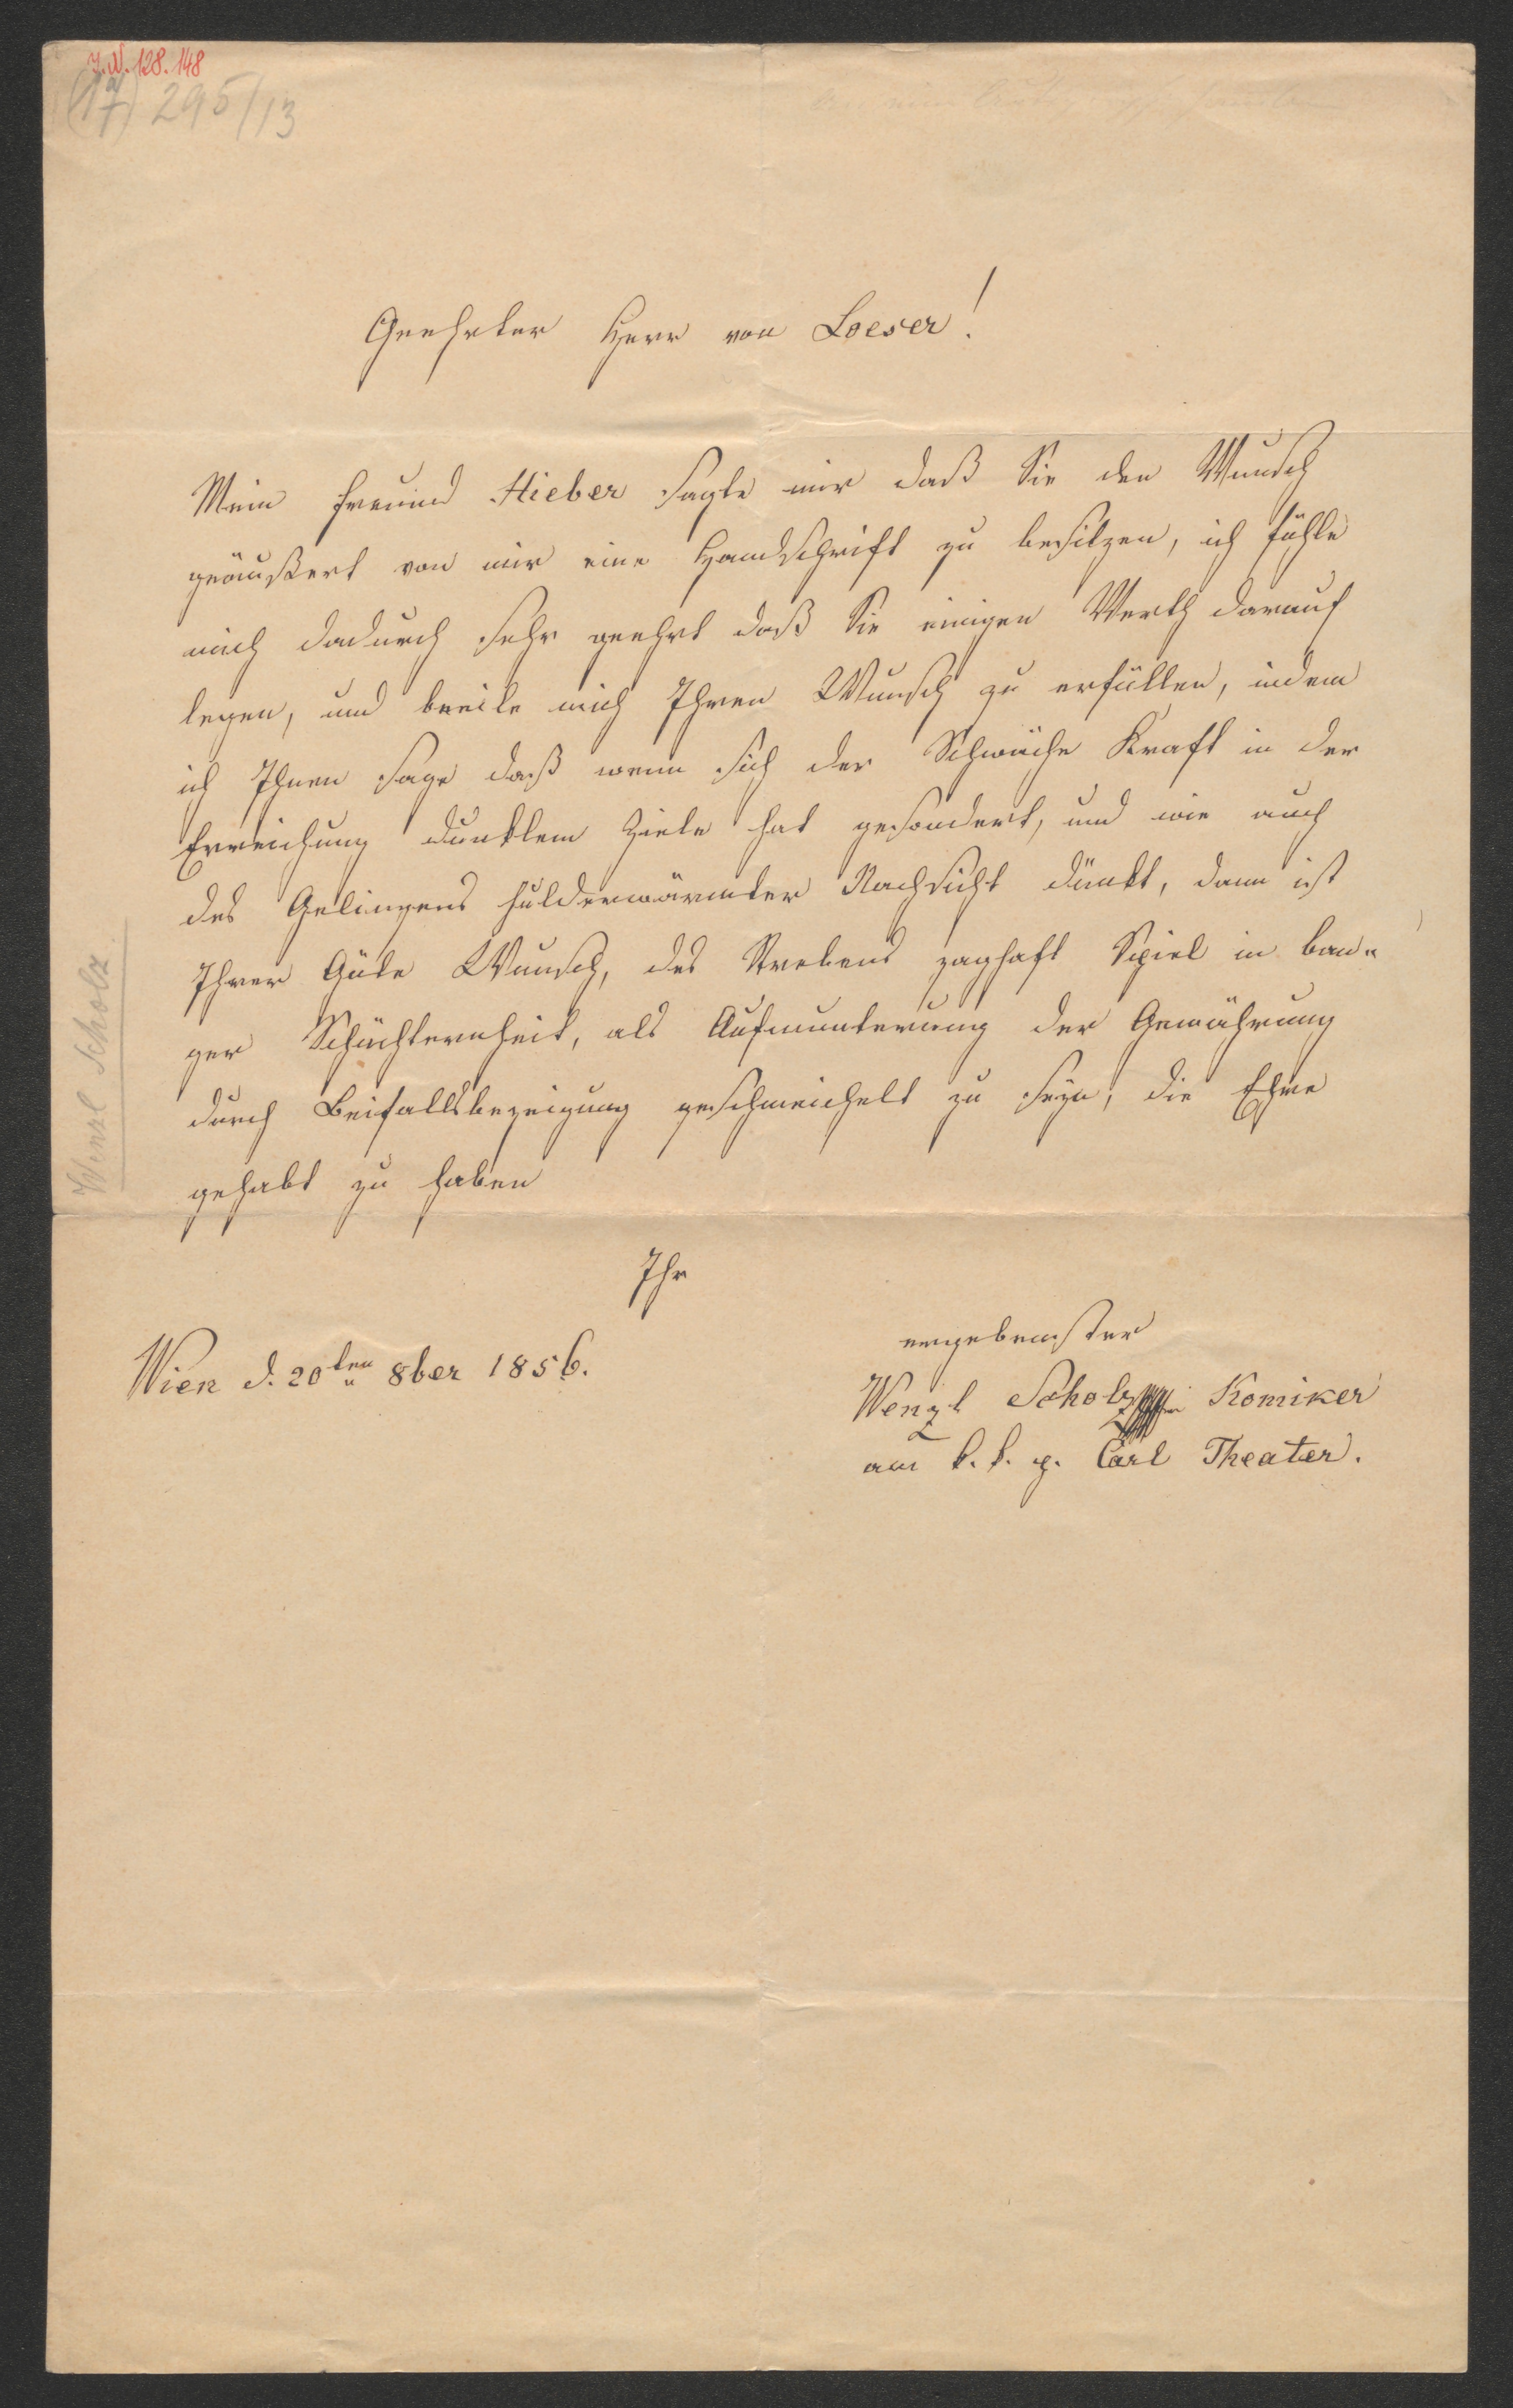 J.N. 128.148
(17) 295/13
Geehrter Herr von Loeser!
Mein Freund Hieber sagte mir daß Sie den Wunsch
geäußert von mir eine Handschrift zu besitzen, ich fühle
mich dadurch sehr geehrt daß Sie einigen Werth darauf
legen, und beeile mich Ihren Wunsch zu erfüllen, indem
ich Ihnen sage daß wenn sich der Schwäche Kraft in der
Erreichung dunklem Ziele hat gesondert, und wie auch
des Gelingens hulderwärmter Nachsicht dünkt, dann ist
Ihrer Güte Wunsch, des Strebens zaghaft Spiel in ban-
ger Schüchternheit, als Aufmunterung der Gewährung
durch Beifallsbezeigung geschmeichelt zu seyn, die Ehre
gehabt zu haben
Ihr
ergebenster
Wien d. 20ten 8ber 1856.
Wenzl Scholz Komiker
am k. k. p. Carl Theater.
Wenzl Scholz